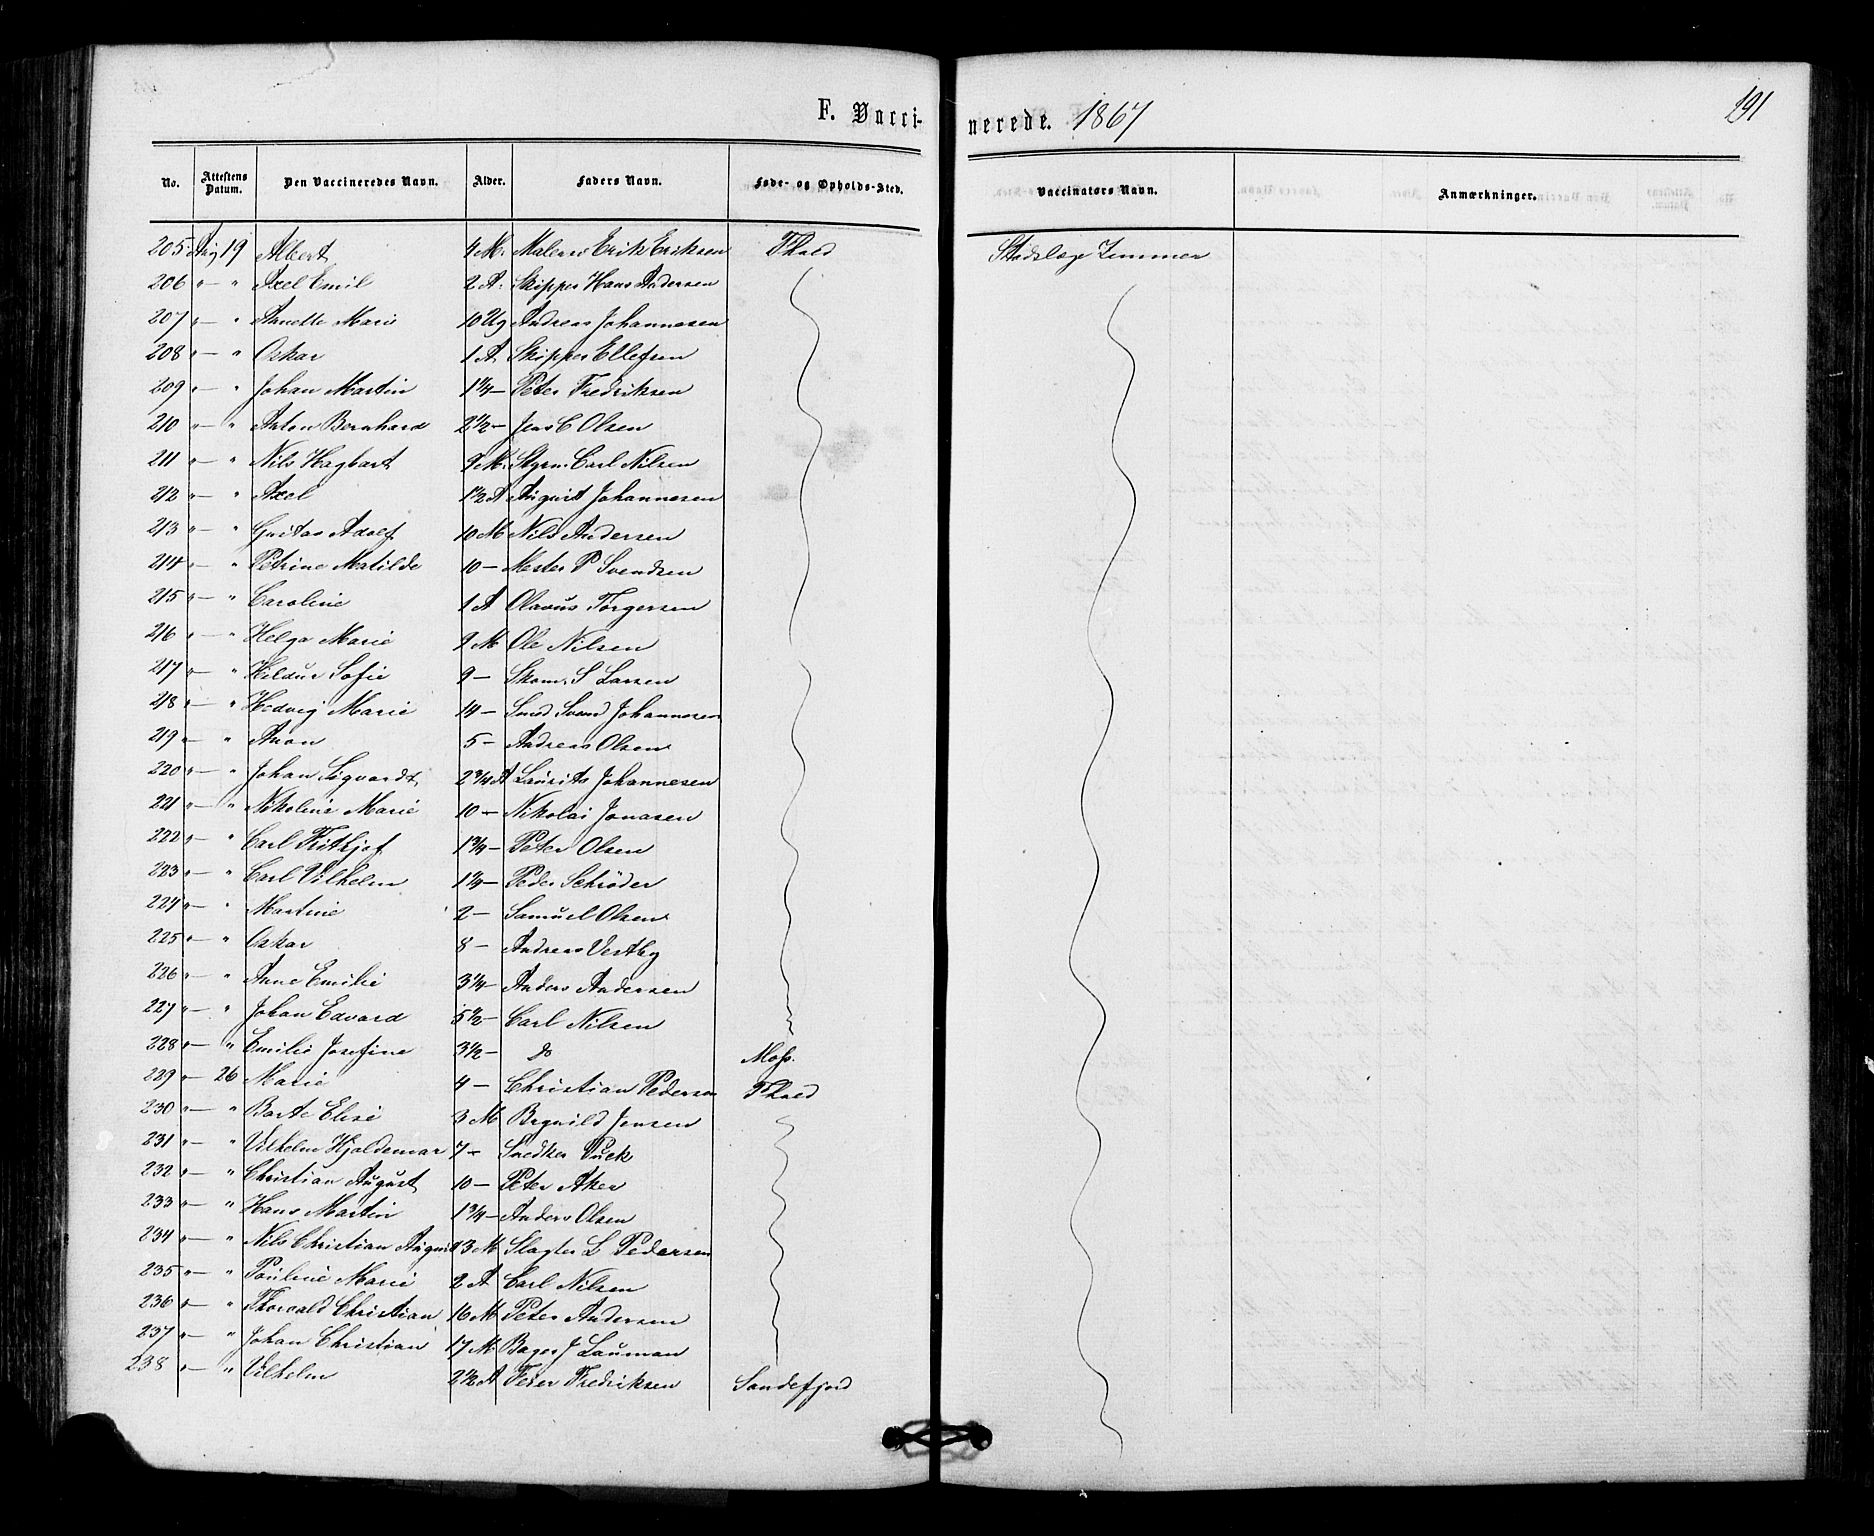 F. Vacci- nerede. 1867
191
No. Attestens Datum. Den Vaccineredes Navn. Alder. Faders Navn. Føde- og Opholds-Sted. Vaccinators Navn. Anmærkninger.
205 Aug 19 Albert 4 M. Maler Erik Eriksen Fhald Stadslæge Zimmer
206 " — " Axel Emil 2 A. Skipper Hans Andersen
207 " — " Anette Marie 10 Ug Andreas Johannesen
208 " — " Oskar 1 A Skipper Ellefsen
209 " — " Johan Martin 1 1/4 — Peter Fredriksen
210 " — " Anton Bernhard 2 1/2 — Jens C Olsen
211 " — " Nils Hagbart 9 M. Styrm. Carl Nilsen
212 " — " Axel 1 1/2 A August Johannesen
213 " — " Gustav Adolf 10 M Nils Andersen
214 " — " Petrine Matilde 10 — Mester P Svendsen
215 " — " Caroline 1 A Olavus Torgersen
216 " — " Helga Marie 9 M Ole Nilsen
217 " — " Hildur Sofie 9 — Skom. S Larsen
218 " — " Hedvig Marie 14 — Smed Svend Johannesen
219 " — " Anton 5 — Andreas Olsen
220 " — " Johan Sigvardt 2 3/4 A Laurits Johannesen
221 " — " Nikoline Marie 10 — Nikolai Jonasen
222 " — " Carl Frithjof 1 3/4 — Peter Olsen
223 " — " Carl Vilhelm 1 1/4 — Peder Schrøder
224 " — " Martine 2 — Samuel Olsen
225 " — " Oskar 8 — Andreas Vestby
226 " — " Anne Emilie 3 1/4 — Anders Andersen
227 " — " Johan Edvard 5 1/2 — Carl Nilsen
228 " — " Emilie Josefine 3 1/2 — do Moss.
229 " — 26 Marie 4 — Christian Pedersen Fhald
230 " — " Elise 3 M Jensen
231 " — " Vilhelm Hjaldemar 7 — Snedker Puck
232 " — " Christian August 10 — Peter Aker
233 " — " Hans Martin 1 3/4 — Anders Olsen
234 " — " Nils Christian August 13 M Slagter L Pedersen
235 " — " Pauline Marie 2 A Carl Nilsen
236 " — " Thorvald Christian 16 M Peter Andersen
237 " — " Johan Christian 17 M. Bager J Lauman
238 " — " Vilhelm 2 1/2 A Peter Fredriksen Sandefjord